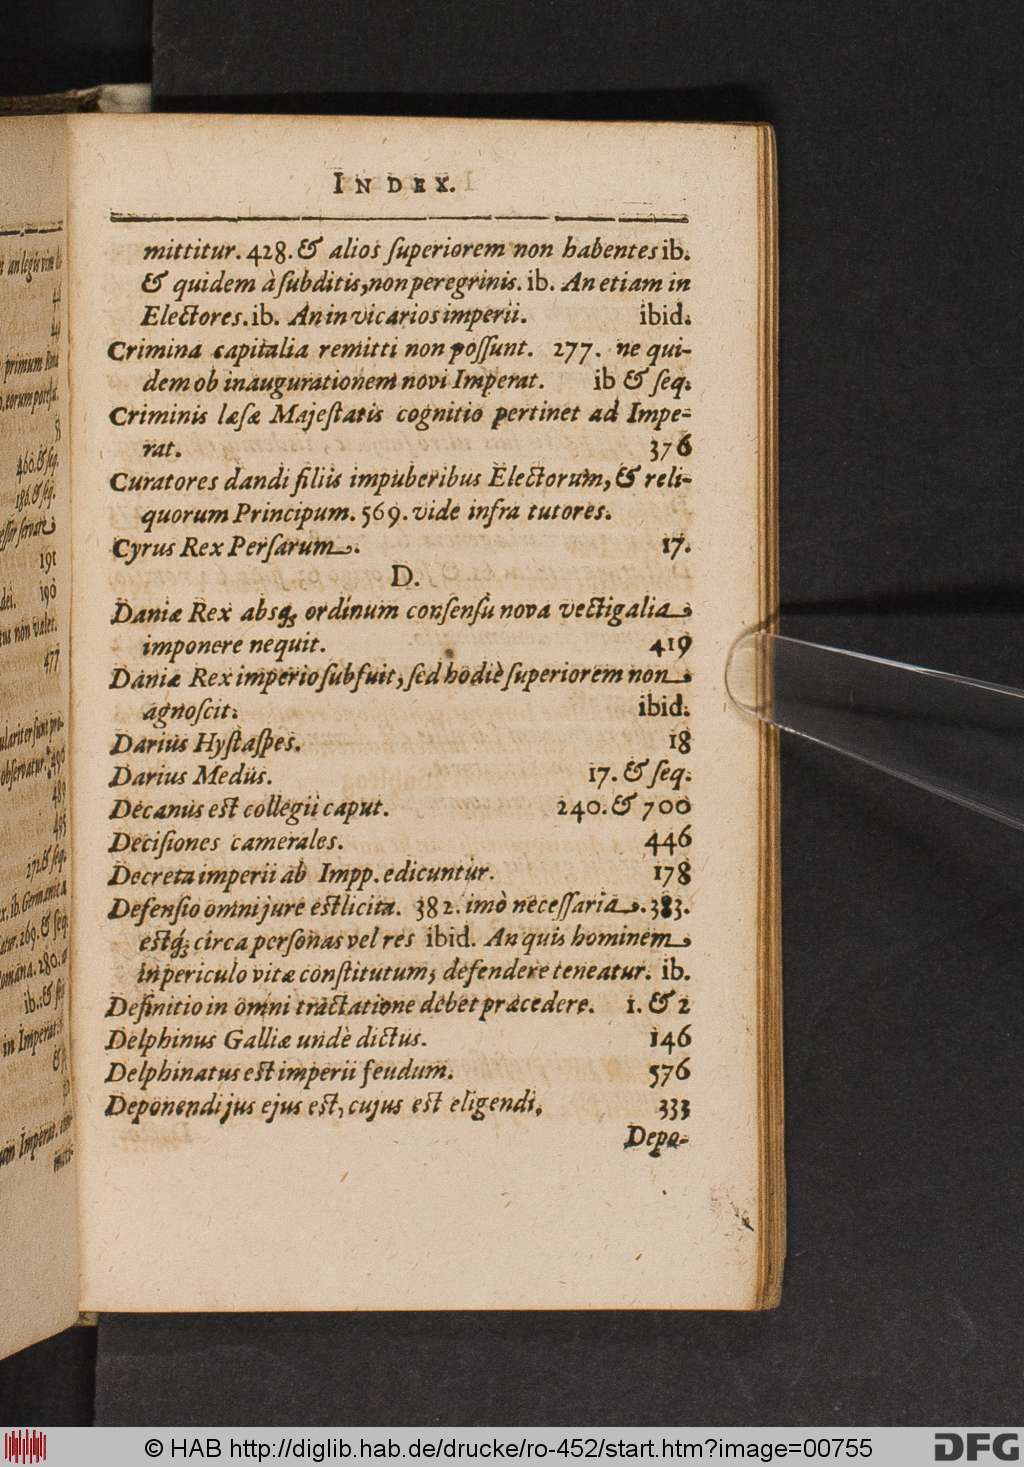 INDEX.
mittitur. 428. & alios ſuperiorem non habentes ib.
& quidem à ſubditis, non peregrinis. ib. An etiam in
Electores. ib. An in vicarios imperii. ibid.
Crimina capitalia remitti non poſſunt. 277. ne qui-
dem ob inaugurationem novi Imperat. ib & ſeq.
Criminis læſæ Majeſtatis cognitio pertinet ad Impe-
rat. 376
Curatores dandi filiis impuberibus Electorum, & reli-
quorum Principum. 569. vide infra tutores.
Cyrus Rex Perſarum. 17.
D.
Daniæ Rex absq; ordinum conſenſu nova vectigalia
imponere nequit. 419
Daniæ Rex imperio ſubfuit, ſed hodiè ſuperiorem non
agnoſcit. ibid.
Darius Hyſtaſpes. 18
Darius Medus. 17. & ſeq.
Decanus est collegii caput. 240. & 700
Deciſiones camerales. 446
Decreta imperii ab Impp. edicuntur. 178
Defenſio omni jure est licita. 382. imò neceſſaria. 383.
estq́; circa perſonas vel res ibid. An quis hominem
in periculo vitæ conſtitutum, defendere teneatur. ib.
Definitio in omni tractatione debet præcedere. 1. & 2
Delphinus Galliæ undè dictus. 146
Delphinatus est imperii feudum. 576
Deponendi jus ejus est, cujus est eligendi. 333
Depo-
460. & ſeq.
186. & ſeq.
191
190
477
© HAB http://diglib.hab.de/drucke/ro-452/start.htm?image=00755
DFG